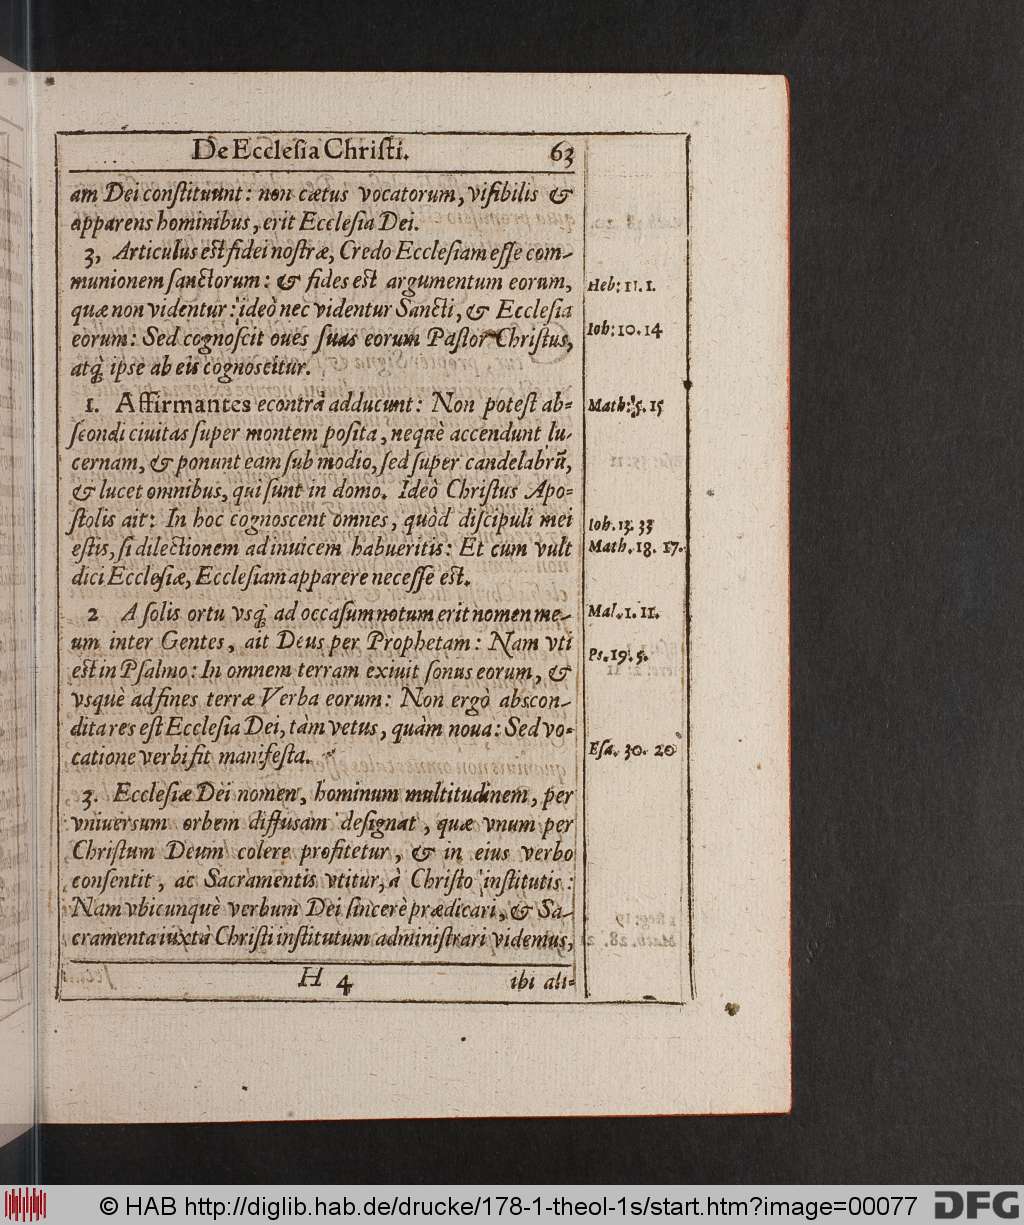 De Ecclesia Christi. 63
am Dei constituunt: non cætus vocatorum, visibilis &
apparens hominibus, erit Ecclesia Dei.
3, Articulus est fidei nostræ, Credo Ecclesiam esse com-
munionem sanctorum: & fides est argumentum eorum,
quæ non videntur: ideò nec videntur Sancti, & Ecclesia
eorum: Sed cognoscit oues suas eorum Pastor Christus,
atq; ipse ab eis cognoscitur.
1. Affirmantes econtrà adducunt: Non potest ab-
scondi ciuitas super montem posita, nequè accendunt lu-
cernam, & ponunt eam sub modio, sed super candelabrũ,
& lucet omnibus, qui sunt in domo. Ideò Christus Apo-
stolis ait: In hoc cognoscent omnes, quòd discipuli mei
estis, si dilectionem adinuicem habueritis: Et cum vult
dici Ecclesiæ, Ecclesiam apparere necesse est.
2 A solis ortu vsq; ad occasum notum erit nomen me-
um inter Gentes, ait Deus per Prophetam: Nam vti
est in Psalmo: In omnem terram exiuit sonus eorum, &
vsquè ad fines terræ Verba eorum: Non ergò abscon-
dita res est Ecclesia Dei, tàm vetus, quàm noua: Sed vo-
catione verbi fit manifesta.
3. Ecclesiæ Dei nomen, hominum multitudinem, per
vniuersum orbem diffusam designat, quæ vnum per
Christum Deum colere profitetur, & in eius verbo
consentit, ac Sacramentis vtitur, à Christo institutis:
Nam vbicunquè verbum Dei sincerè prædicari, & Sa-
cramenta iuxtà Christi institutum administrari videmus,
H 4 ibi ali-
Heb: 11. 1.
Ioh: 10. 14
Math: 5. 15
Ioh. 13. 35
Math. 18. 17.
Mal. 1. 11.
Ps. 19. 5.
Esa. 30. 20
© HAB http://diglib.hab.de/drucke/178-1-theol-1s/start.htm?image=00077 DFG